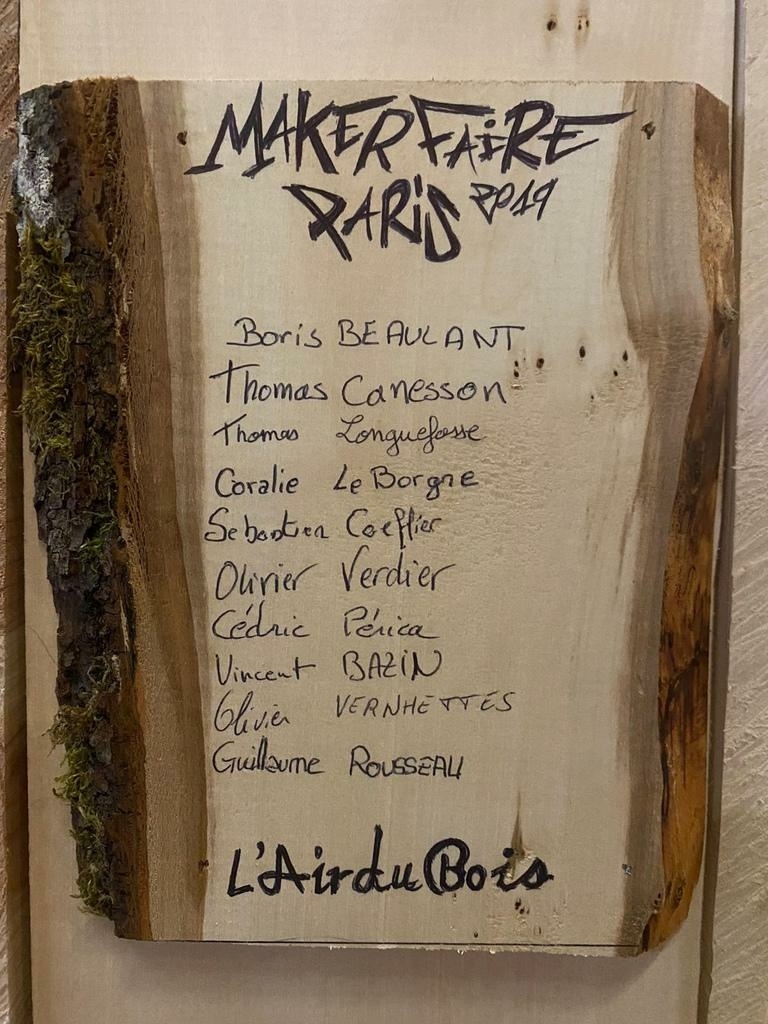 MAKER FAIRE
PARIS 2019
Boris BEAULANT
Thomas Canesson
Thomas Longuefosse
Coralie Le Borgne
Sebastien Coeffier
Olivier Verdier
Cédric Périca
Vincent BAZIN
Olivier VERNHETTES
Guillaume ROUSSEAU
L'Air du Bois